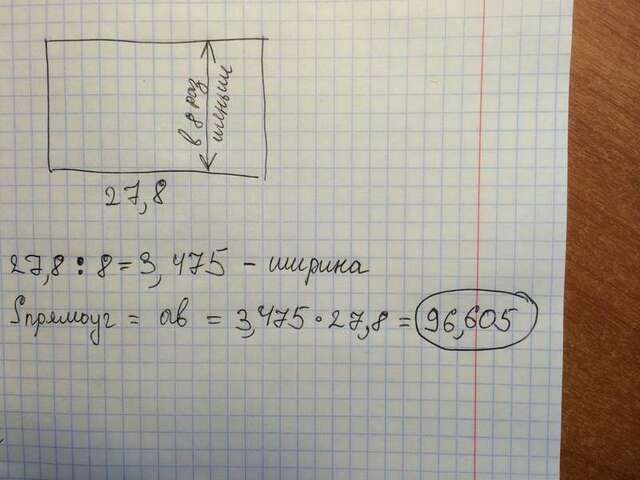 в 8 раз
меньше
27,8
27,8 : 8 = 3,475 - ширина
Sпрямоуг = ab = 3,475 · 27,8 = 96,605